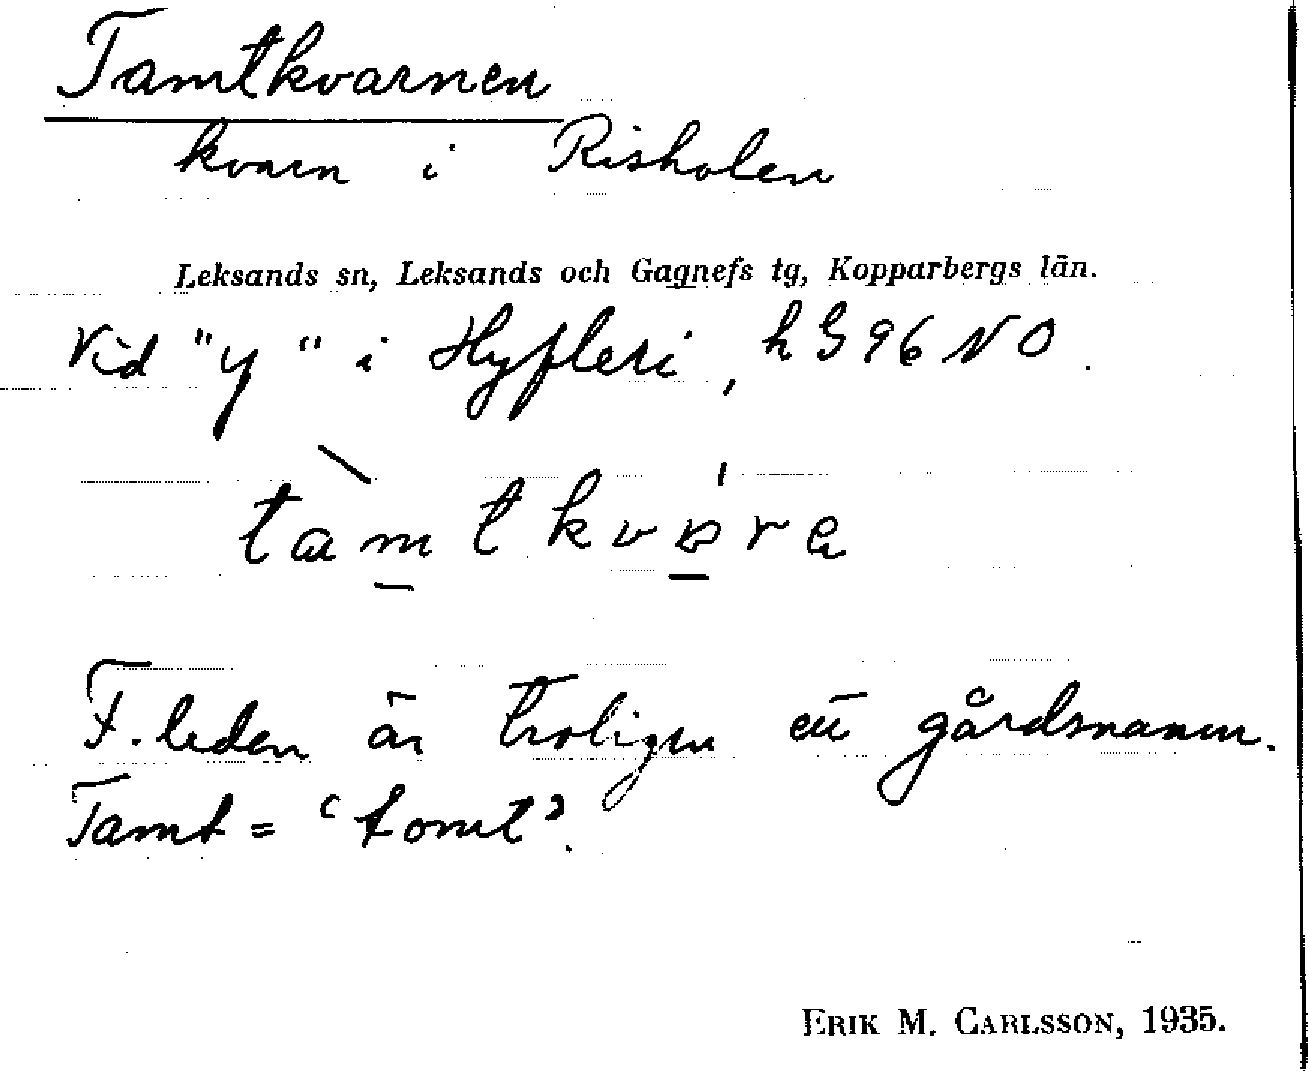 Tamtkvarnen
kvarn i Risholen
Leksands sn, Leksands och Gagnefs tg, Kopparbergs län.
Vid "y" i Hyfleri, h G 96 NO.
tamtkvɒ́ra
F. leden är troligen ett gårdsnamn.
Tamt = 'tomt'.
ERIK M. CARLSSON, 1935.